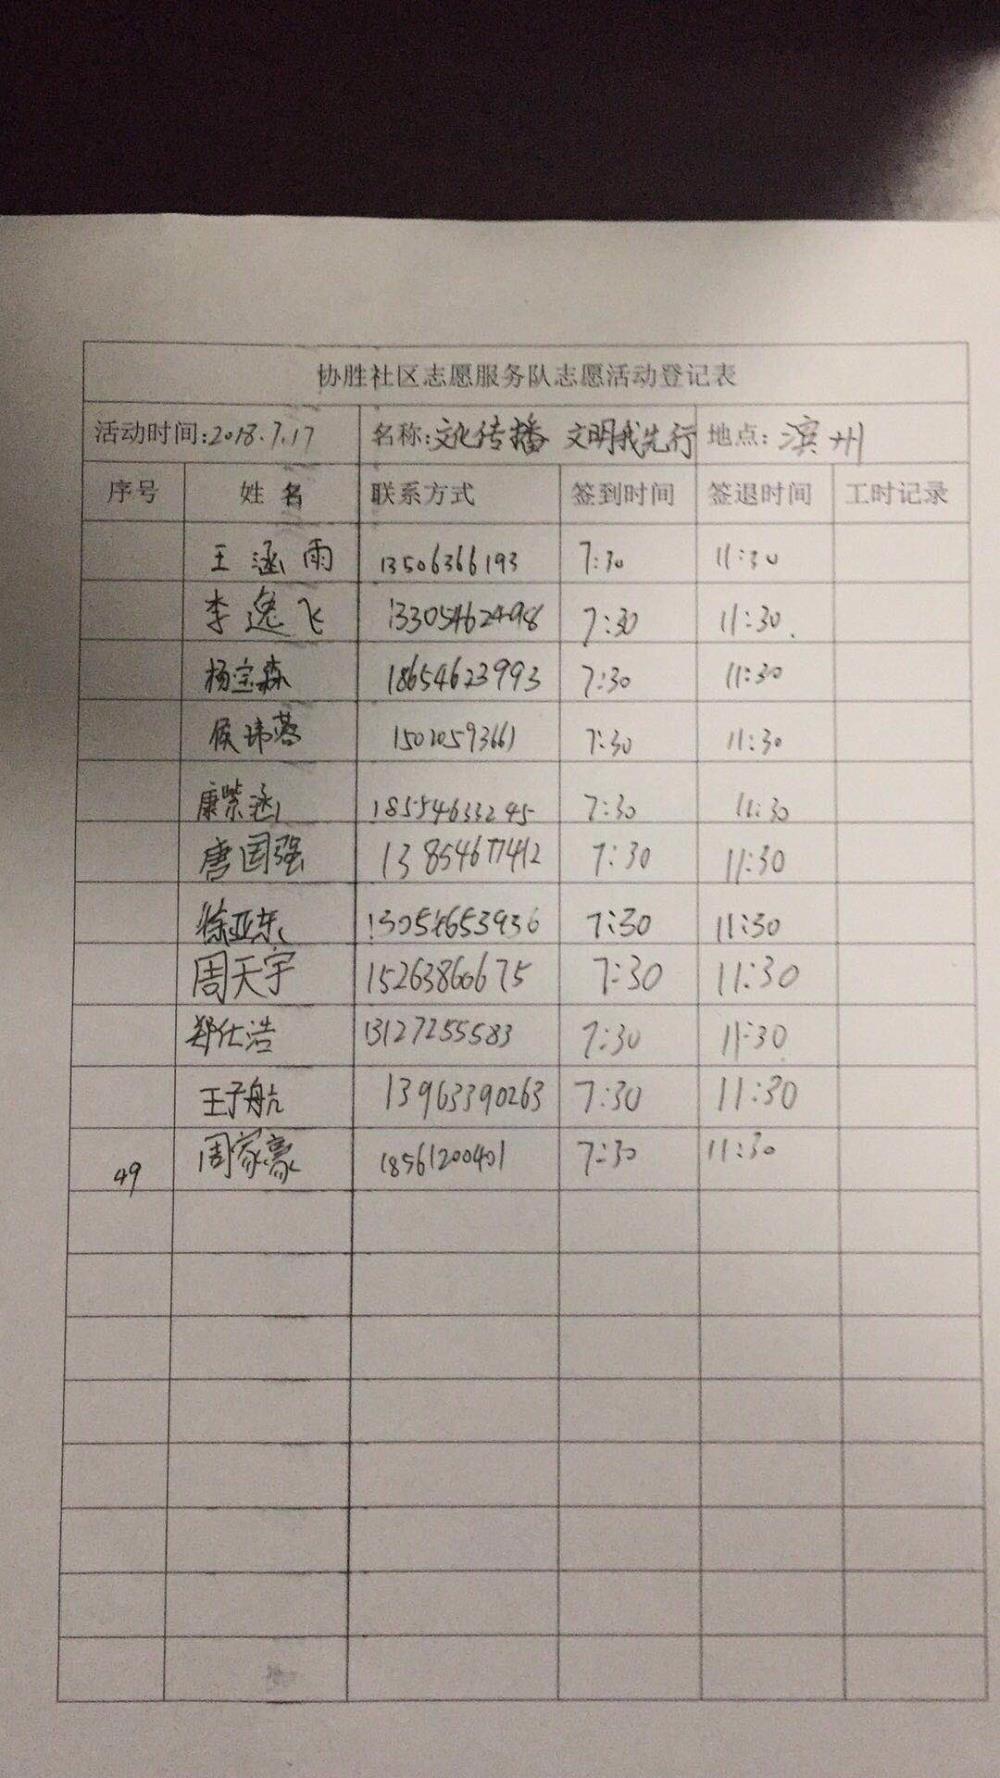 协胜社区志愿服务队志愿活动登记表
活动时间:2018.7.17 名称:文化传播 文明我先行 地点:滨州
序号 姓名 联系方式 签到时间 签退时间 工时记录
王涵雨 13506366193 7:30 11:30
李逸飞 13305462498 7:30 11:30
杨宝森 18654623993 7:30 11:30
侯玮蓉 15020593661 7:30 11:30
康紫涵 18554633245 7:30 11:30
唐国强 13854677412 7:30 11:30
徐亚东 13054653936 7:30 11:30
周天宇 15263860675 7:30 11:30
郑仕浩 13127255583 7:30 11:30
王子航 13963390263 7:30 11:30
49 周家豪 18561200401 7:30 11:30